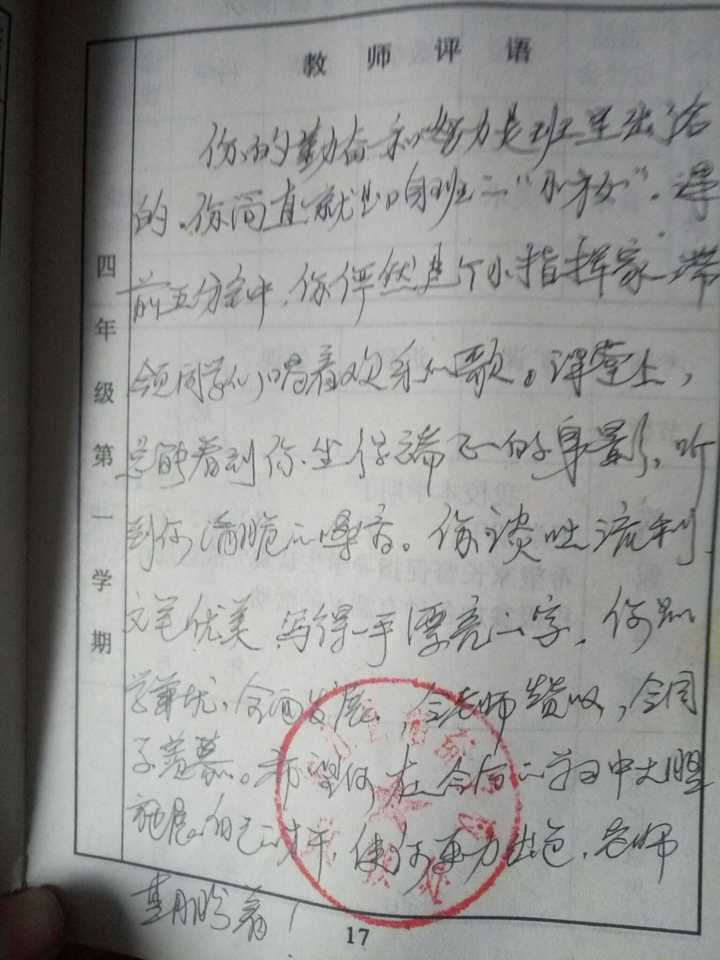 教师评语
四年级第一学期
你的勤奋和努力是班里出名
的，你简直就是咱班的“小才女”。课
前五分钟中，你俨然是个小指挥家，带
领同学们唱着欢乐的歌。课堂上，
总能看到你坐得端正的身影，听
到你清脆的嗓音。你谈吐流利，
文笔优美，写得一手漂亮的字，你品
学兼优，全面发展，令老师赞叹，令同
学羡慕。希望你在今后的学习中大胆
施展自己的才干，使你更加出色，老师
期盼着！
17